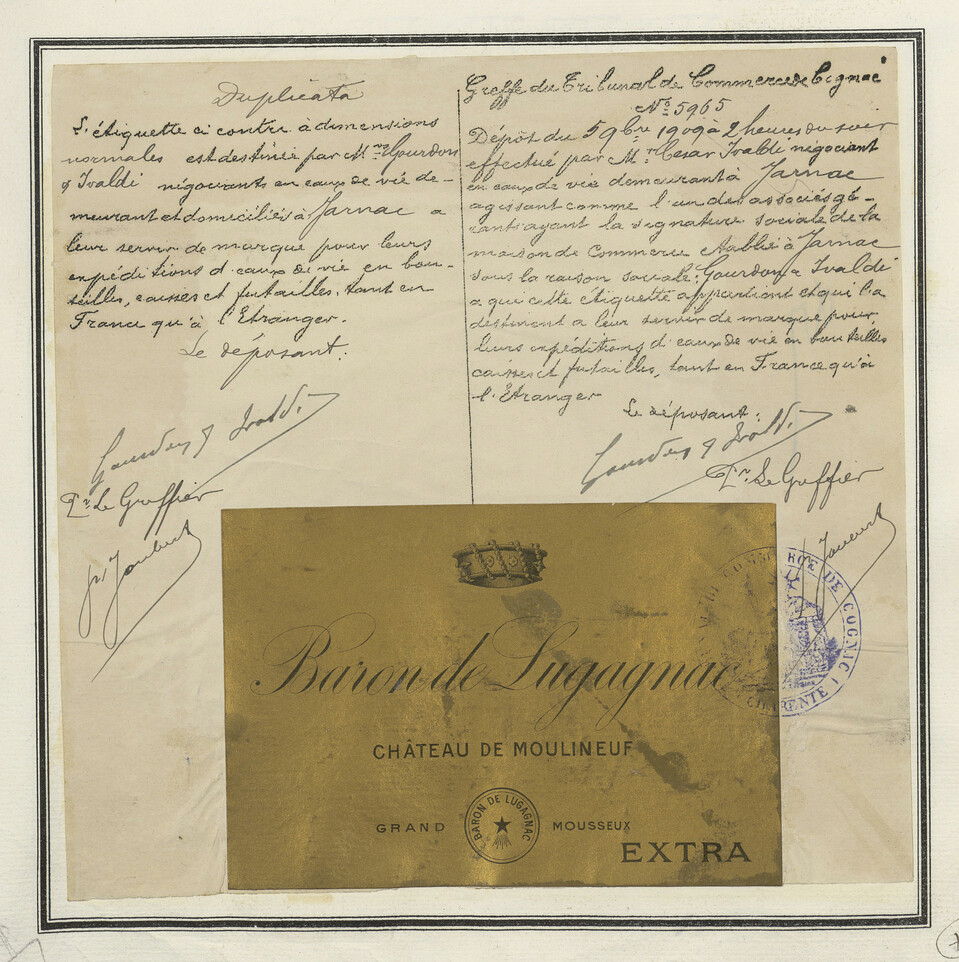 Duplicata
L'étiquette ci contre à dimensions
normales est destinée par M.rs Gourdon
& Ivaldi négociants en eaux de vie de-
meurant et domiciliés à Jarnac a
leur servir de marque pour leurs
expéditions d'eaux de vie en bou-
teilles, caisses et futailles, tant en
France qu'à l'Etranger.
Le déposant:
Gourdon & Ivaldi
Pr. Le Greffier
Greffe du Tribunal de Commerce de Cognac
No. 5965
Dépôt du 5 9bre 1909 à 2 heures du soir
effectué par M.r Cesar Ivaldi négociant
en eaux de vie demeurant à Jarnac
agissant comme l'un des associés gé-
rants ayant la signature sociale de la
maison de Commerce etablie à Jarnac
sous la raison sociale: Gourdon & Ivaldi
a qui cette étiquette appartient et qui la
destinent a leur servir de marque pour
leurs expéditions d'eaux de vie en bouteilles
caisses et futailles, tant en France qu'à
l'Etranger
Le déposant:
Gourdon & Ivaldi
Pr. Le Greffier
Baron de Lugagnac
CHÂTEAU DE MOULINEUF
GRAND MOUSSEUX
BARON DE LUGAGNAC
EXTRA
COMMERCE DE COGNAC
CHARENTE